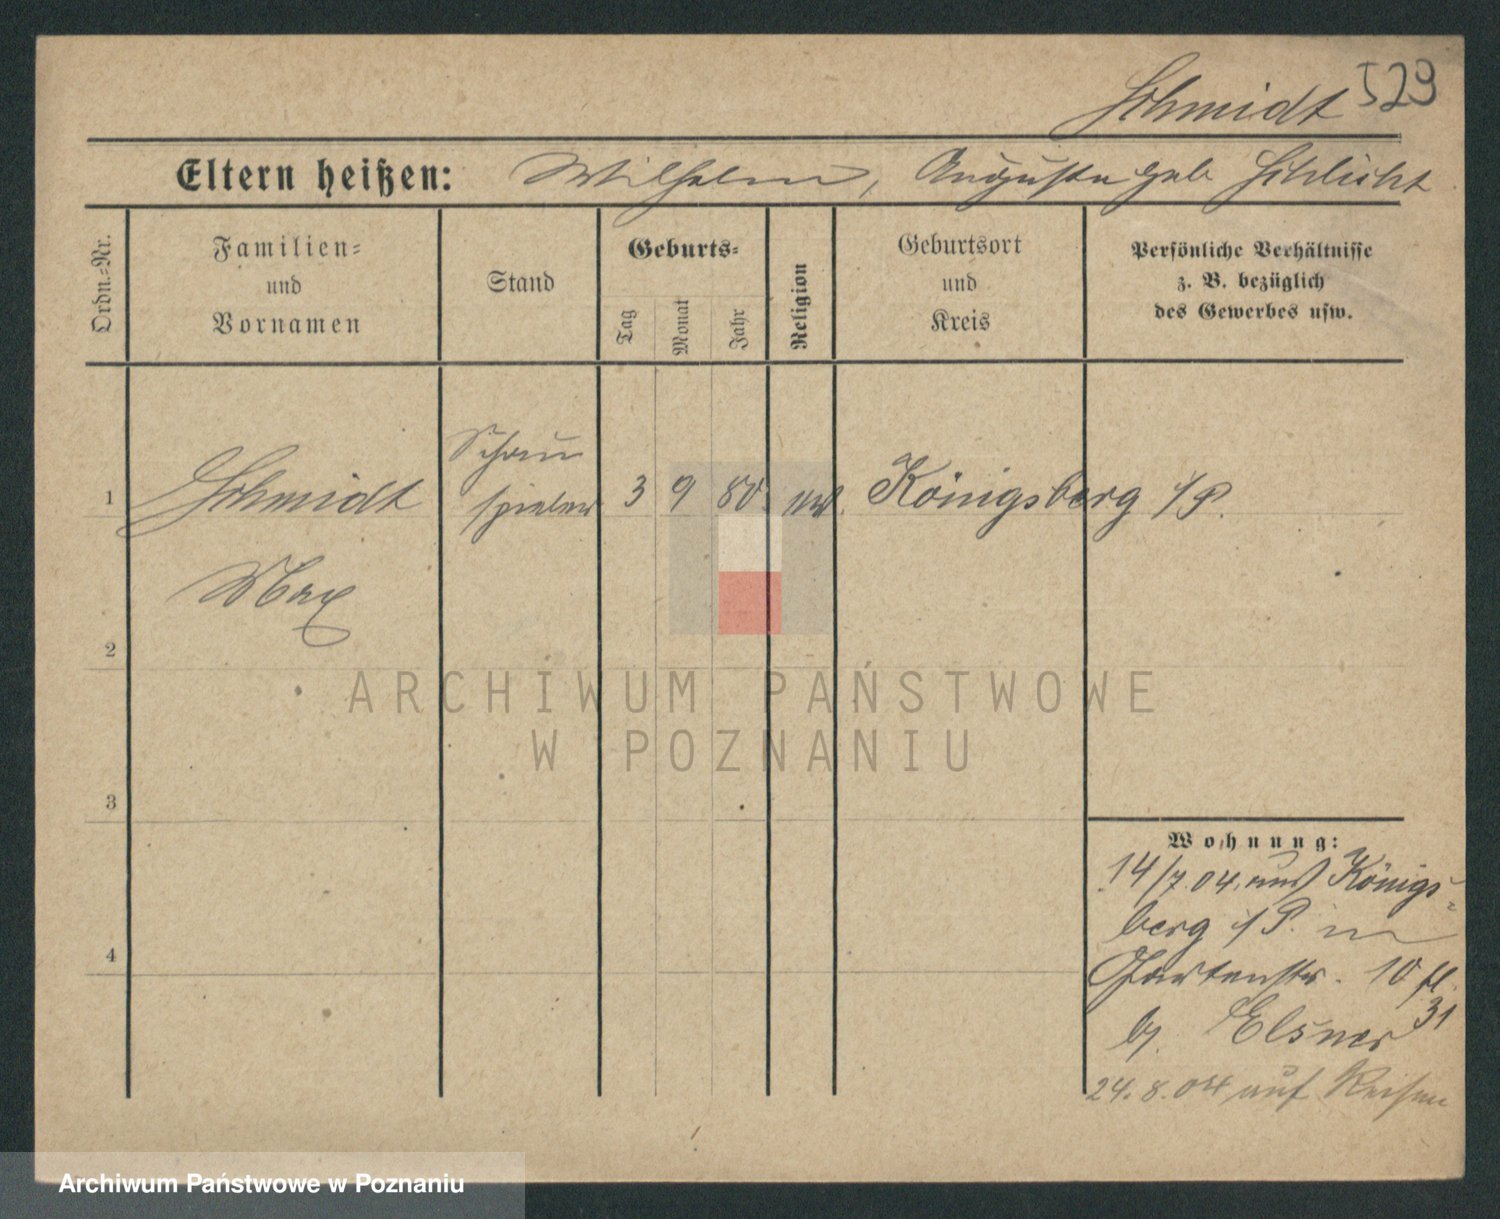 Schmidt 529
Eltern heißen: Wilhelm, Auguste geb Schlicht
Ordn.=Nr.
Familien=
und
Vornamen
Stand
Geburts=
Tag
Monat
Jahr
Religion
Geburtsort
und
Kreis
Persönliche Verhältnisse
z. B. bezüglich
des Gewerbes usw.
1
Schmidt
Max
Schau
spieler
3 9 80. ev.
Königsberg i/P.
2
3
4
Wohnung:
14/7.04. aus Königs=
berg i/P. in
Gartenstr. 10
31
b/. Elsner
24.8.04 auf Reisen
ARCHIWUM PAŃSTWOWE
W POZNANIU
Archiwum Państwowe w Poznaniu